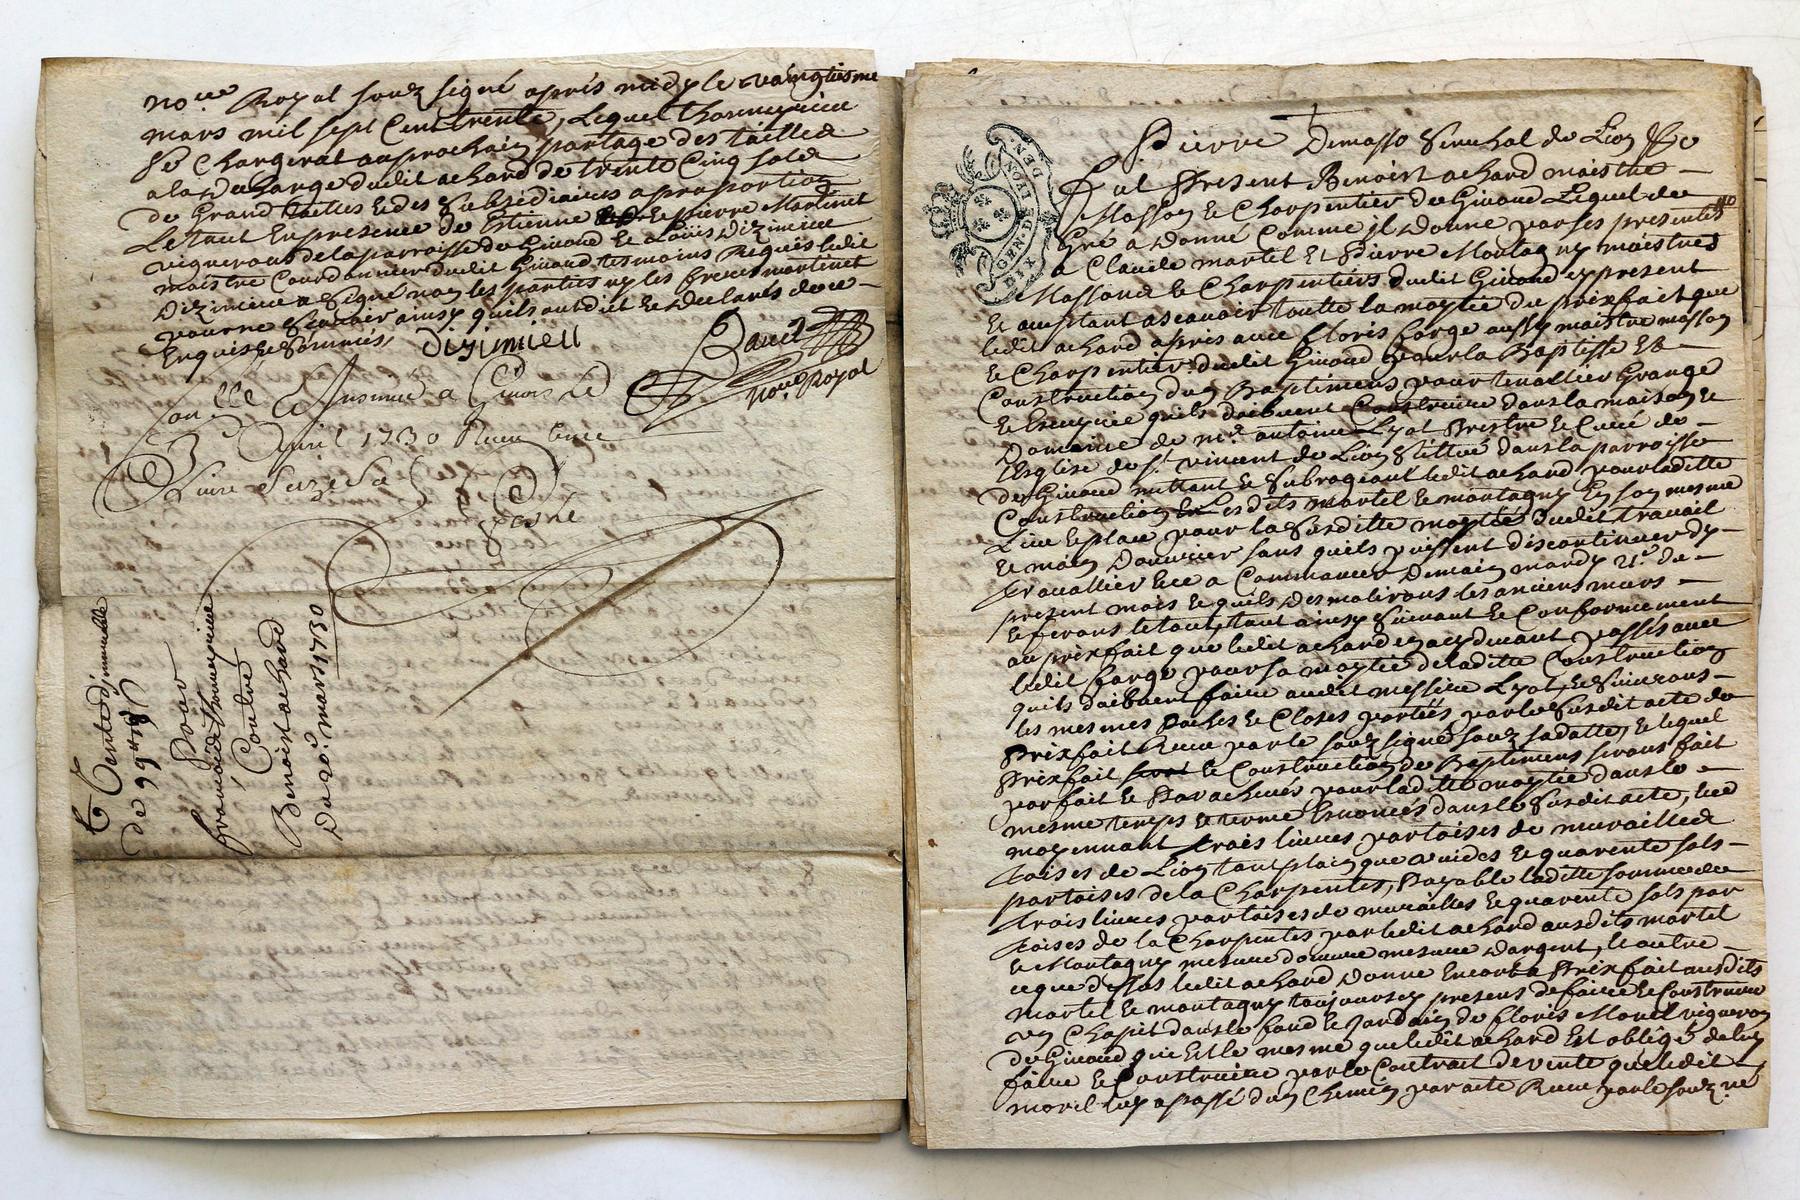 no.re Royal souz signé aprés midy le vaingtiesme
mars mil sept Cens trente, Lequel thoumeyrieu
se Chargerat au prochain partage des tailles
a la decharge dudit achard de trente Cinq sols
de Grand tailles et des subsédiaires a proportion
Le tout en presence de Estienne et pierre Martinet
vignerons de la parroisse de Givord et Loüis Dizimieu
maistre Courdonnier dudit Givord tesmoins Requis ledit
Dizimieu a signé non les parties ny les freres martinet
pour ne scavoir ainsy quils ont dit et declarés de ce
Enquis et sommés,
dizimieu
no.re Royal
Con.lle et Insinué a Givors le
3.e Avril 1730 Receu une
Livre seize sols
E Vente d'immeuble
de 99
Pour
françois thoumeyrieu
Contre
Benoist achard
Du 20.e mars 1730
GEN. DE LYON
DIX DEN.
Pierre Demasso senechal de Lion
fut Present Benoist achard maistre
Masson et Charpentier de Givord Lequel de
Gré a donné Comme il donne par ses presentes
a Claude martel Et Pierre Montagny maistres
Massons et Charpentiers dudit Givord cy present
et acceptant ascavoir toutte la moytié du prixfait que
ledit achard a pris avec floris farge aussy maistre masson
et Charpentier dudit Givord pour la Baptisse et
Construction du Baptimens pour tenallier Grange
et Escuyrie quils doibvent Construire dans la maison et
Domaine de m.re antoine Lyot Prestre et Curé de
l'Esglise de S.t vincent de Lion scittué dans la parroisse
de Givord mettant et subrogeant ledit achard pour ladite
Construction lesdits martel et montagny en son mesme
Lieu et place pour la susditte moytié dudit travail
et main d'ouvrier sans quils puissent discontinuer dy
travallier et ce a Commancer demain mardy 21.e du
present mois et quils desmoliront les anciens murs
et feront le tout, tout ainsy suivant et Conformement
au prixfait que ledit achard en a cy devant passés avec
ledit farge pour sa moytié de laditte Construction
quils doibvent faire audit messire Lyot, et suivrons
les mesmes pactes et Closes portés par le susdit acte de
Prixfait Receu par le souz signé souz sa datte, et lequel
Prixfait et Construction de Baptimens serons fait
parfait et Parachevés pour laditte moytié dans le
mesme temps et terme Enoncés dans le susdit acte, et ce
moyennant trois livres par toises de murailles
toises de Lion tant plain que vuides et quarente sols
par toises de la Charpentes, payable laditte somme de
trois livres par toises de murailles et quarente sols par
toises de la Charpentes par ledit achard ausdits martel
et Montagny mesure d'ouvre mesure d'argent, et outre
ce que dessus ledit achard donne encore a Prixfait ausdits
martel et montagny toujours cy presens de faire et Construire
un Chapit dans le fond et Jardain de floris Morel vigneron
de Givord qui Est le mesme que ledit achard Est obligé de luy
faire et Construire par le Contrait de vente que ledit
morel luy a passé d'un Chemin par acte Receu par le souz.né